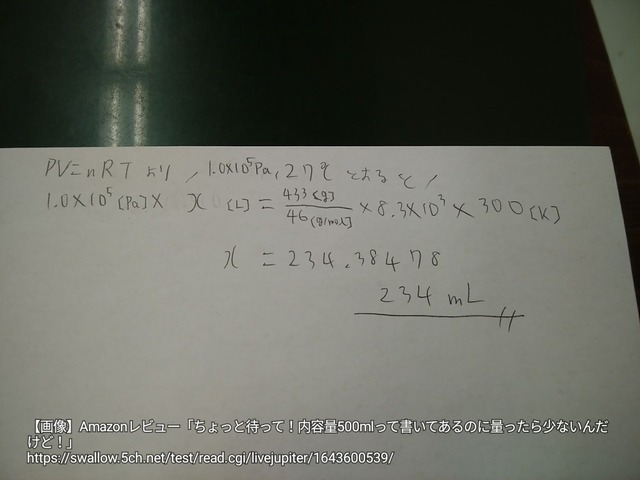 PV=nRTより, 1.0×10⁵Pa, 27℃とすると,
1.0×10⁵[Pa]× x [L] = 433[g]/46[g/mol] ×8.3×10³×300[K]
x = 234.38478
234 mL
【画像】Amazonレビュー「ちょっと待って!内容量500mlって書いてあるのに量ったら少ないんだ
けど!」
https://swallow.5ch.net/test/read.cgi/livejupiter/1643600539/